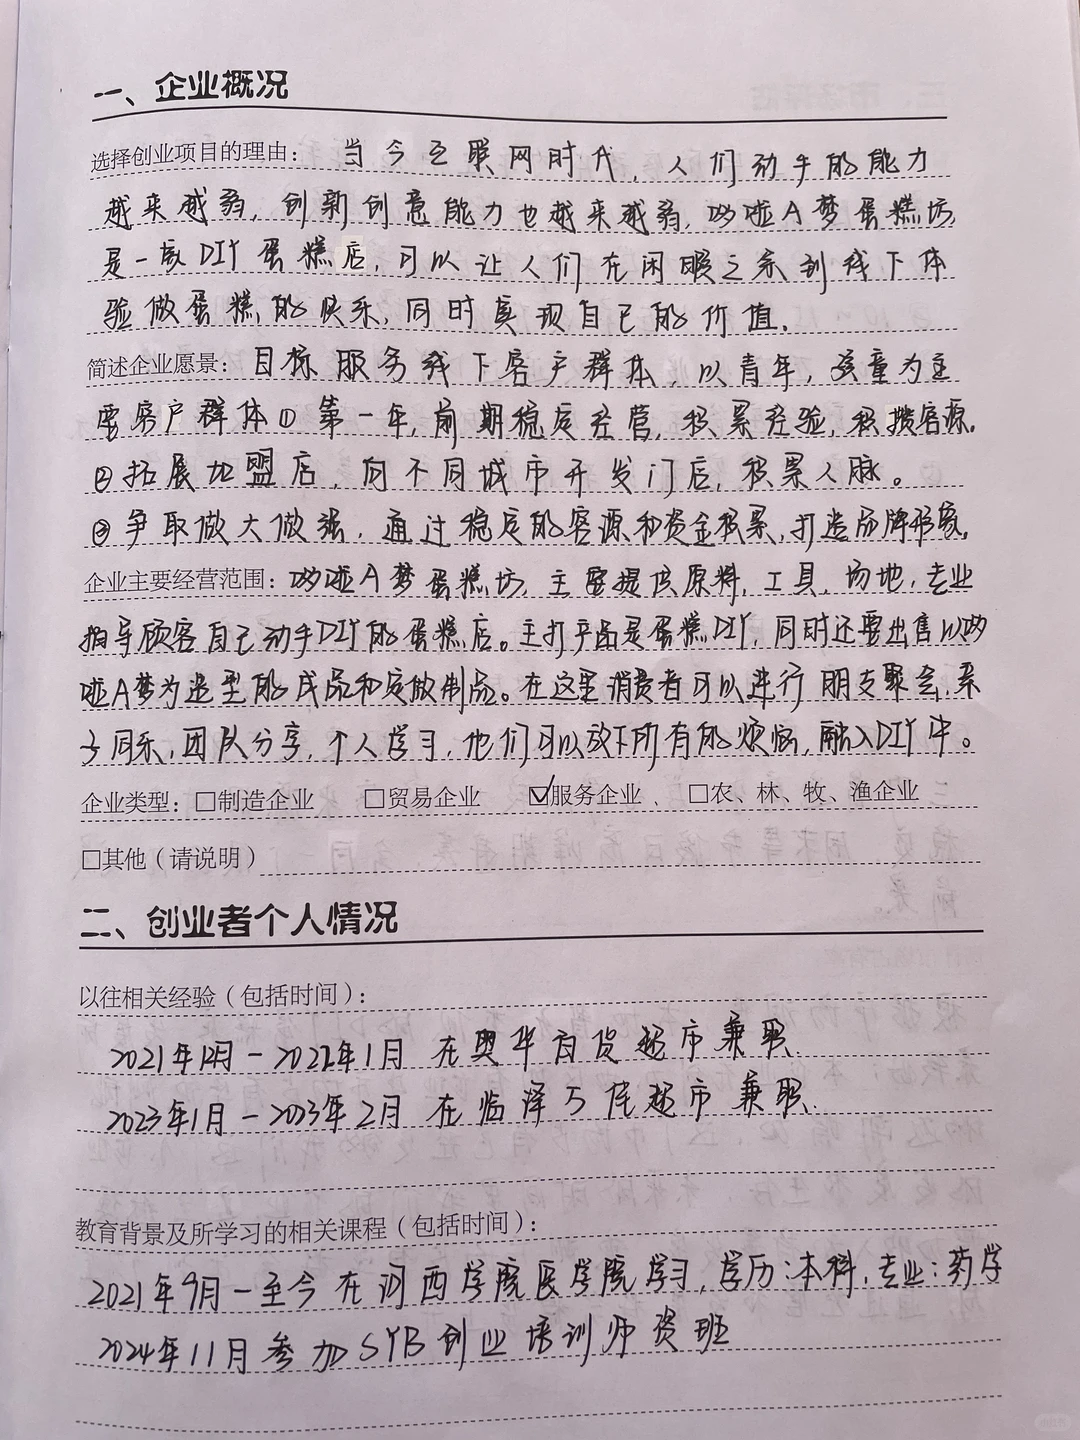 一、企业概况
选择创业项目的理由：当今互联网时代，人们动手的能力
越来越弱，创新创意能力也越来越弱，哆啦A梦蛋糕坊
是一家DIY蛋糕店，可以让人们在闲暇之余到线下体
验做蛋糕的快乐，同时实现自己的价值。
简述企业愿景：目标服务线下客户群体，以青年，孩童为主
要客户群体①第一年，前期稳定经营，积累经验，积攒客源。
②拓展加盟店，向不同城市开发门店，积累人脉。
③争取做大做强，通过稳定的客源和资金积累，打造品牌形象。
企业主要经营范围：哆啦A梦蛋糕坊，主要提供原料，工具，场地，专业
指导顾客自己动手DIY的蛋糕店。主打产品是蛋糕DIY，同时还要出售以哆
啦A梦为造型的成品和定做制品。在这里消费者可以进行朋友聚会，亲
子同乐，团队分享，个人学习，他们可以放下所有的烦恼，融入DIY中。
企业类型：□制造企业 □贸易企业 ☑服务企业、□农、林、牧、渔企业
□其他（请说明）
二、创业者个人情况
以往相关经验（包括时间）：
2021年12月－2022年1月 在奥华百货超市兼职
2023年1月－2023年2月 在临泽万佳超市兼职
教育背景及所学习的相关课程（包括时间）：
2021年9月－至今在河西学院医学院学习，学历：本科，专业：药学
2024年11月参加SYB创业培训师资班